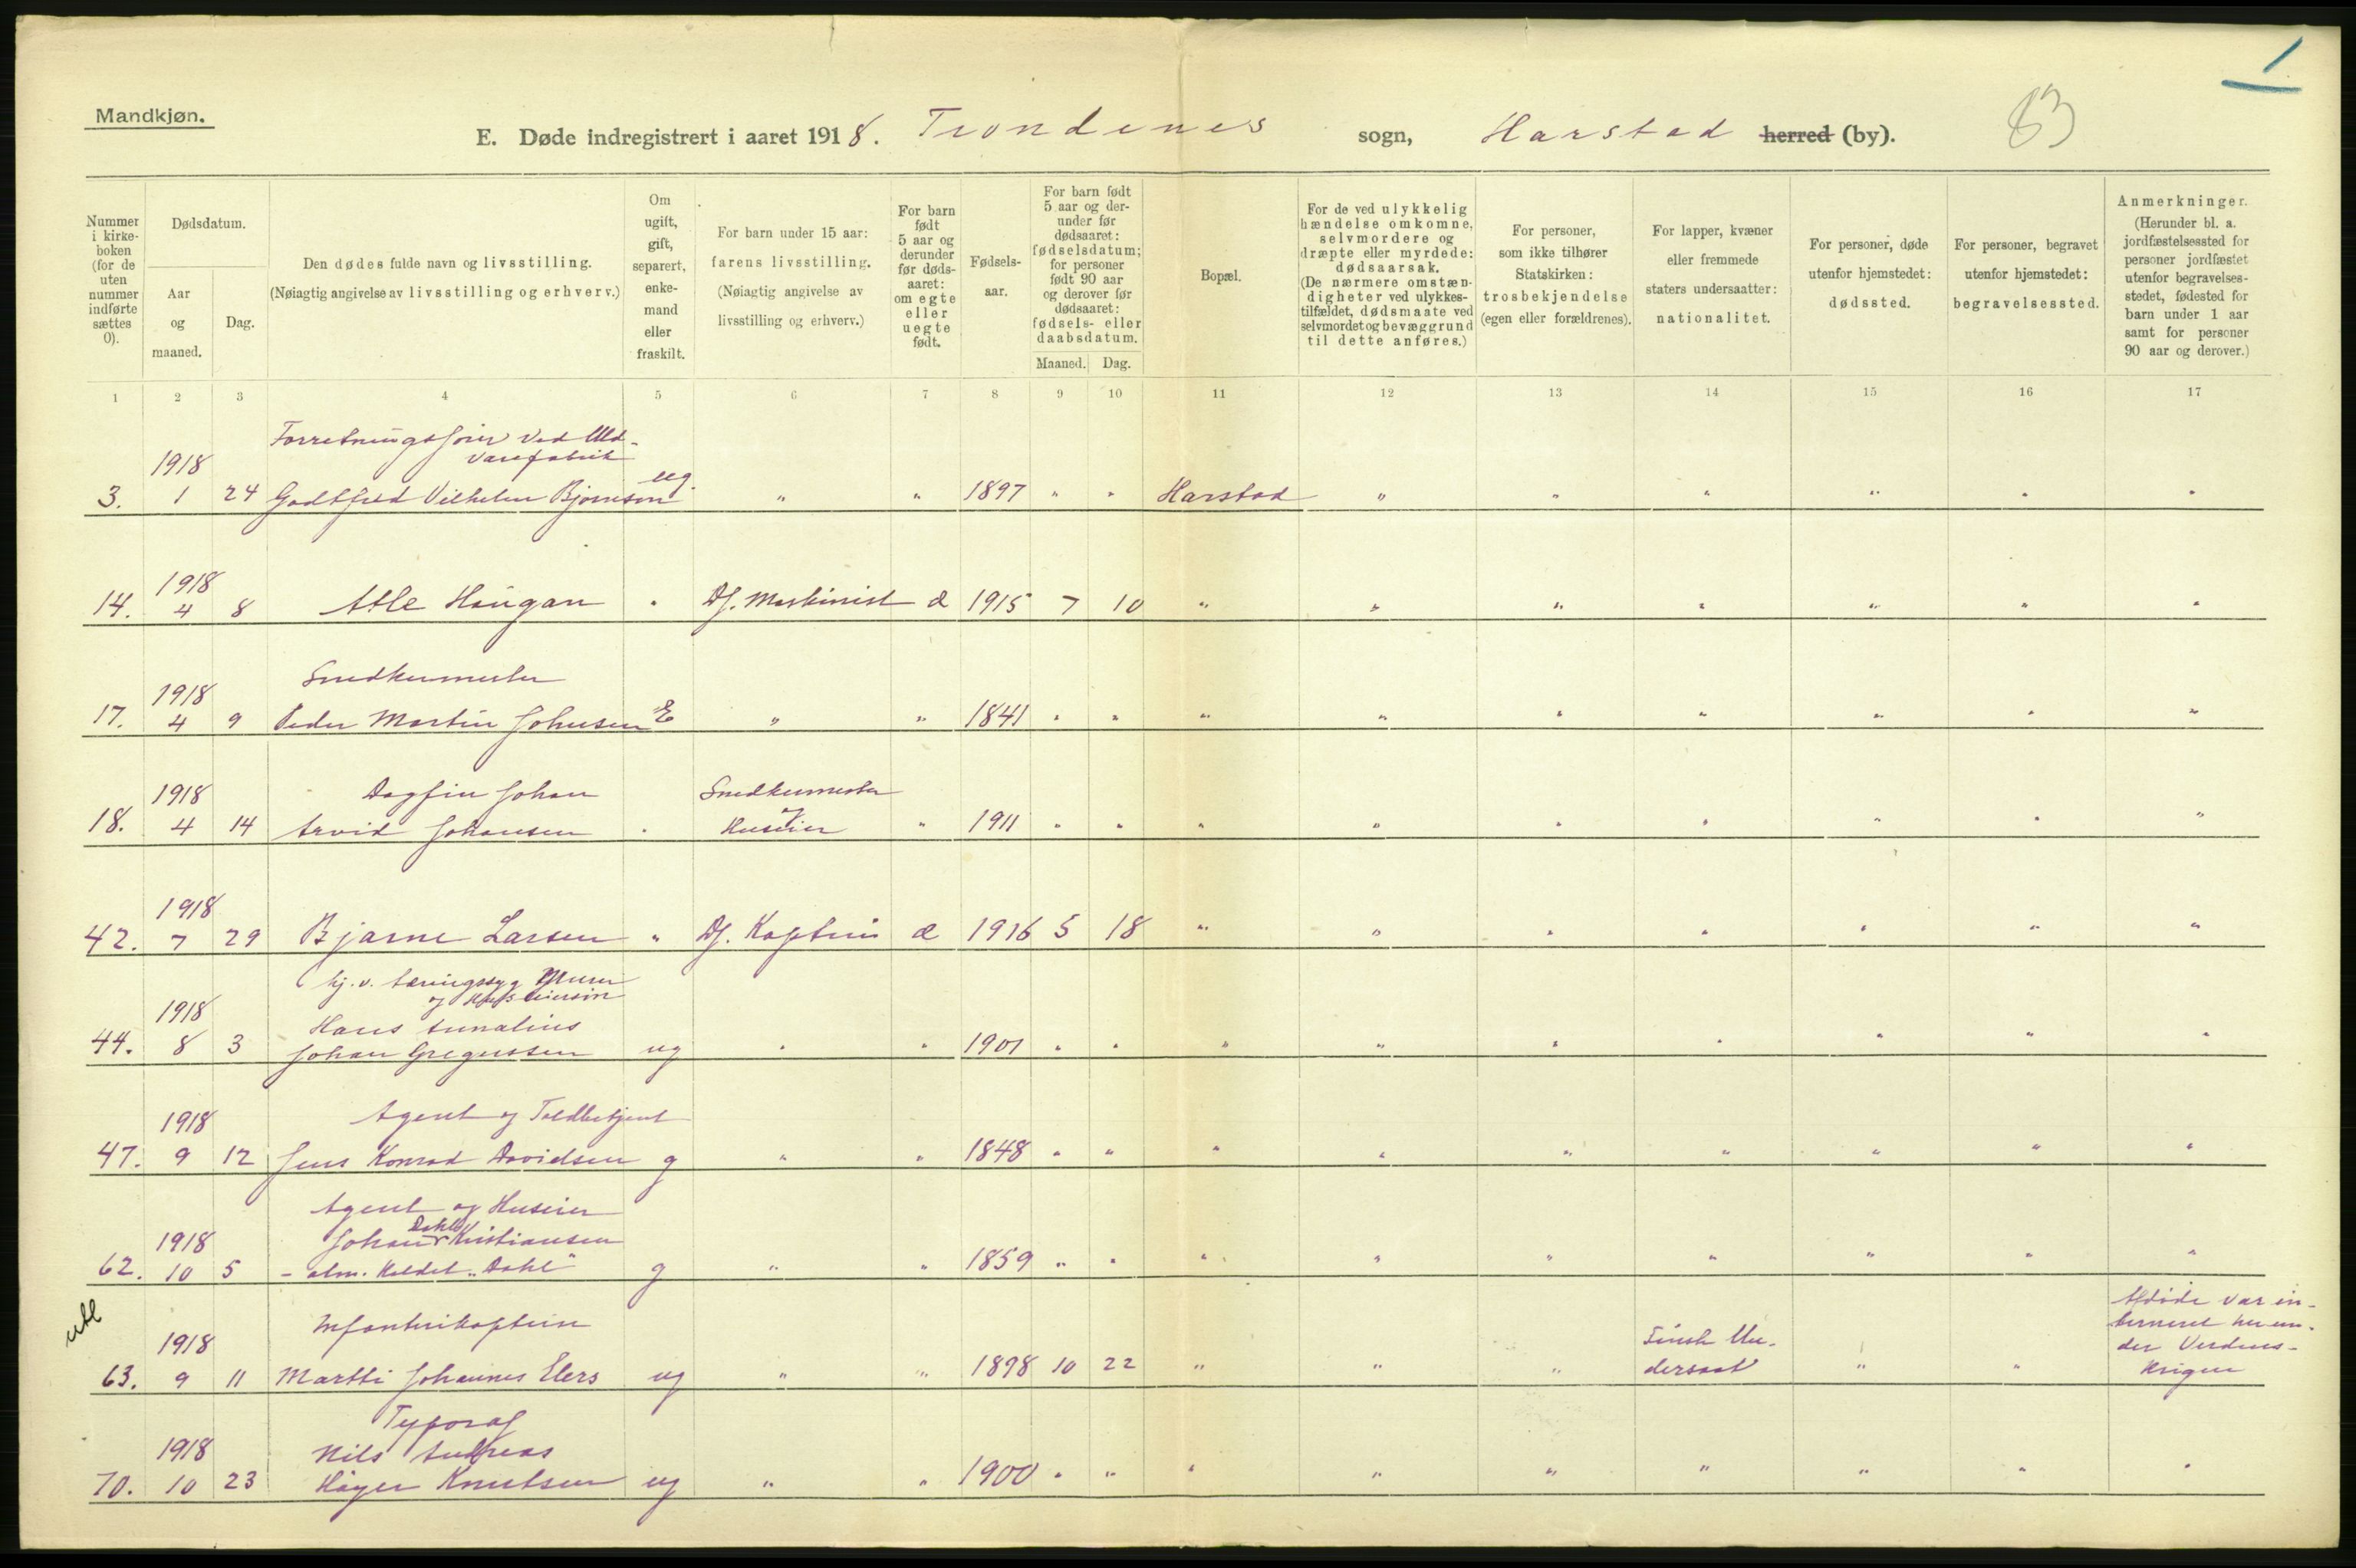 1
Mandkjøn.
E. Døde indregistrert i aaret 1918. Trondenes sogn, Harstad herred (by). 83
Nummer i kirkeboken (for de uten nummer indførte sættes 0).
Dødsdatum.
Aar og maaned.
Dag.
Den dødes fulde navn og livsstilling.
(Nøiagtig angivelse av livsstilling og erhverv.)
Om ugift, gift, separert, enkemand eller fraskilt.
For barn under 15 aar: farens livsstilling. (Nøiagtig angivelse av livsstilling og erhverv.)
For barn født 5 aar og derunder før dødsaaret: om egte eller uegte født.
Fødselsaar.
For barn født 5 aar og derunder før dødsaaret: fødselsdatum; for personer født 90 aar og derover før dødsaaret: fødsels- eller daabsdatum.
Maaned. Dag.
Bopæl.
For de ved ulykkelig hændelse omkomne, selvmordere og dræpte eller myrdede: dødsaarsak. (De nærmere omstændigheter ved ulykkestilfældet, dødsmaate ved selvmordet og bevæggrund til dette anføres.)
For personer, som ikke tilhører Statskirken: trosbekjendelse (egen eller forældrenes).
For lapper, kvæner eller fremmede staters undersaatter: nationalitet.
For personer, døde utenfor hjemstedet: dødssted.
For personer, begravet utenfor hjemstedet: begravelsessted.
Anmerkninger. (Herunder bl. a. jordfæstelsessted for personer jordfæstet utenfor begravelsesstedet, fødested for barn under 1 aar samt for personer 90 aar og derover.)
1 2 3 4 5 6 7 8 9 10 11 12 13 14 15 16 17
Forretningsfører ved Uld-
varefabrik
1918
3. 1 24 Godtfred Vilhelm Bjørnson ug. " " 1897 " " Harstad " " " " " "
1918
14. 4 8 Atle Haugan " Df. Maskinist æ 1915 7 10 " " " " " " "
Snedkermester
1918
17. 4 9 Peder Martin Johnsen E " " 1841 " " " " " " " " "
1918 Dagfin Johan Snedkermester
og
18. 4 14 Arvid Johansen " Huseier " 1911 " " " " " " " " "
1918
42. 7 29 Bjarne Larsen " Df. Kaptein æ 1916 5 18 " " " " " " "
hj. v. tæringssyg
og
1918 Hans
44. 8 3 Johan Gregussen ug " " 1901 " " " " " " " " "
Agent og Toldbetjent
1918
47. 9 12 Jens Konrad Davidsen g " " 1848 " " " " " " " " "
Agent og Huseier
Dahl
1918 Johan Kristiansen
62. 10 5 - alm. kaldet "Dahl" g " " 1859 " " " " " " " " "
utl
Infanterikaptein
1918
63. 9 11 Martti Johannes Elers ug " " 1898 10 22 " " " Finsk Un-
dersaat " " Afdøde var in-
terneret her un-
der Verdens-
krigen
Typograf
1918 Nils Andreas
70. 10 23 Høyer Knutsen ug " " 1900 " " " " " " " " "